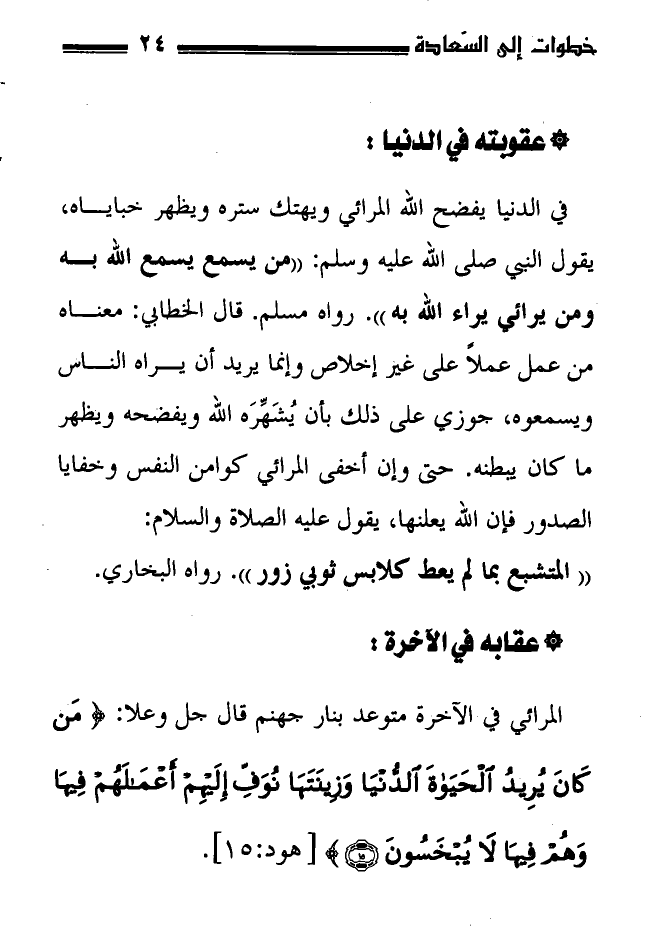 خطوات إلى السّعادة ٢٤
۞ عقوبته في الدنيا :
في الدنيا يفضح الله المرائي ويهتك ستره ويظهر خباياه،
يقول النبي صلى الله عليه وسلم: ((من يسمع يسمع الله به
ومن يرائي يراء الله به)). رواه مسلم. قال الخطابي: معناه
من عمل عملاً على غير إخلاص وإنما يريد أن يراه الناس
ويسمعوه، جوزي على ذلك بأن يُشَهِّرَه الله ويفضحه ويظهر
ما كان يبطنه. حتى وإن أخفى المرائي كوامن النفس وخفايا
الصدور فإن الله يعلنها، يقول عليه الصلاة والسلام:
(( المتشبع بما لم يعط كلابس ثوبي زور )). رواه البخاري.
۞ عقابه في الآخرة :
المرائي في الآخرة متوعد بنار جهنم قال جل وعلا: ﴿ مَن
كَانَ يُرِيدُ ٱلْحَيَوٰةَ ٱلدُّنْيَا وَزِينَتَهَا نُوَفِّ إِلَيْهِمْ أَعْمَـٰلَهُمْ فِيهَا
وَهُمْ فِيهَا لَا يُبْخَسُونَ ۝١٥ ﴾ [هود:١٥].